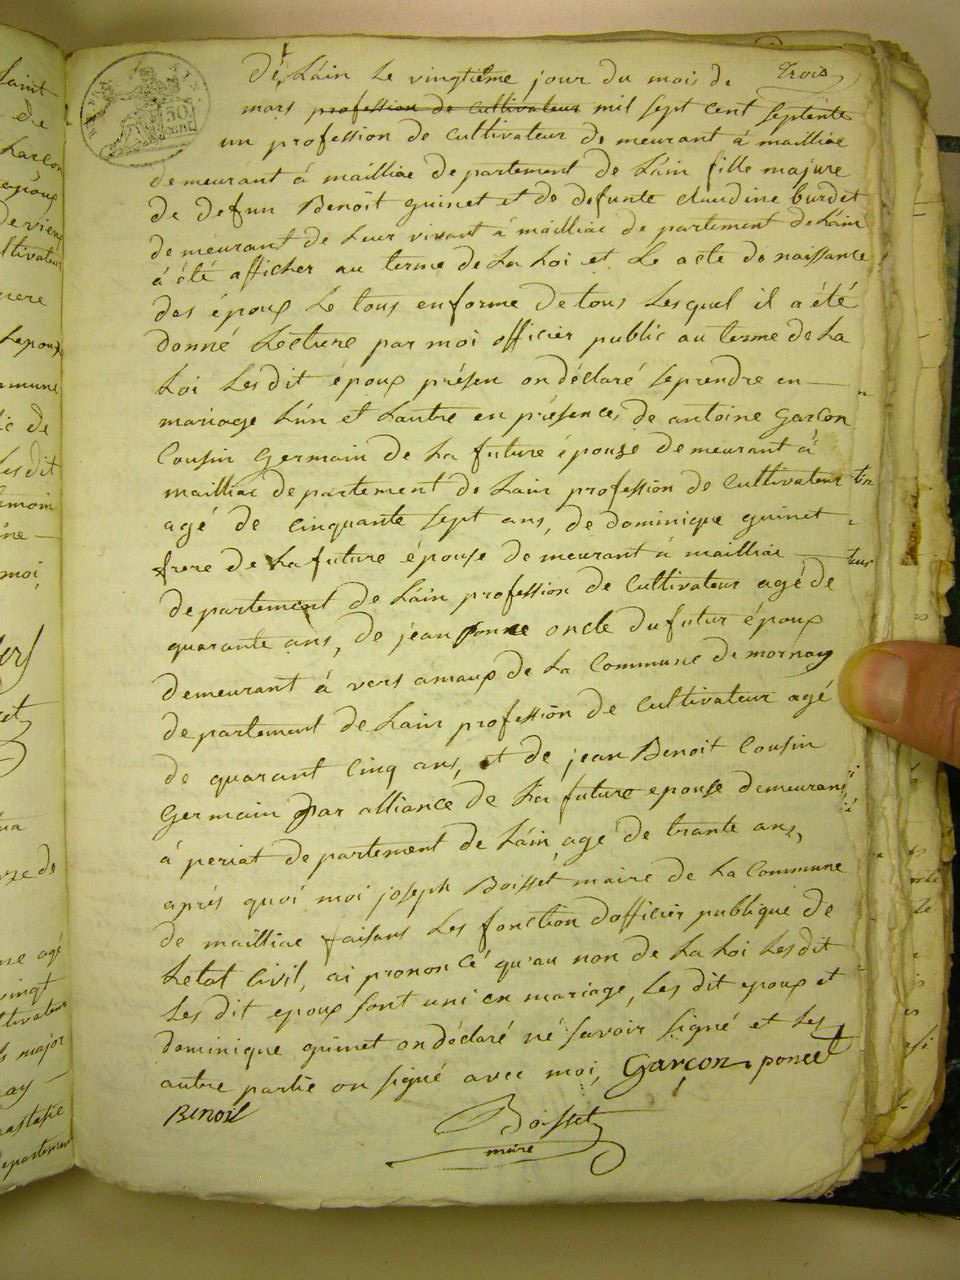 dé Láin Le vingtiéme jour du mois de Trois
mars profession de cultivateur mil sept cent septente
un profession de cultivateur de meurant á mailliac
demeurant á mailliac departement de Láin fille majure
de defun Benoit guinet et de defunte claudine burdet
demeurant de Leur vivant á mailliac de partement de Láin
á été afficher au terme de La Loi et Le acte de naissance
des époux Le tous enforme de tous Lesquel il a été
donné Lecture par moi officier public au terme de La
Loi Lesdit époux présen on déclaré seprendre en
mariage Lún et Lautre en présence, de antoine Garcon
Cousin germain de La future épouse demeurant á
mailliac departement de Lain profession de Cultivateur
agé de cinquante sept ans, de dominique guinet
frere de La future épouse de meurant á mailliac
departement de Láin profession de Cultivateur agé de
quarante ans, de jean ponce oncle du futur époux
demeurant á vers amaux de La Commune de mornay
departement de Lain profession de Cultivateur agé
de quarant Cinq ans, et de jean Benoit Cousin
germain par alliance de La future epouse demeurant
á periat departement de Láin agé de trante ans,
aprés quoi moi joseph Boisset maire de La Commune
de mailliac faisans Les fonction dofficier publique de
Letat Civil, ai prononcé qu'au non de La Loi Lesdit
Les dit epoux sont uni en mariage, Les dit epoux et
dominique guinet on déclaré né savoir signé et Les
autre partie on signé avec moi, Garçon ponce
Benoit
Boisset
maire